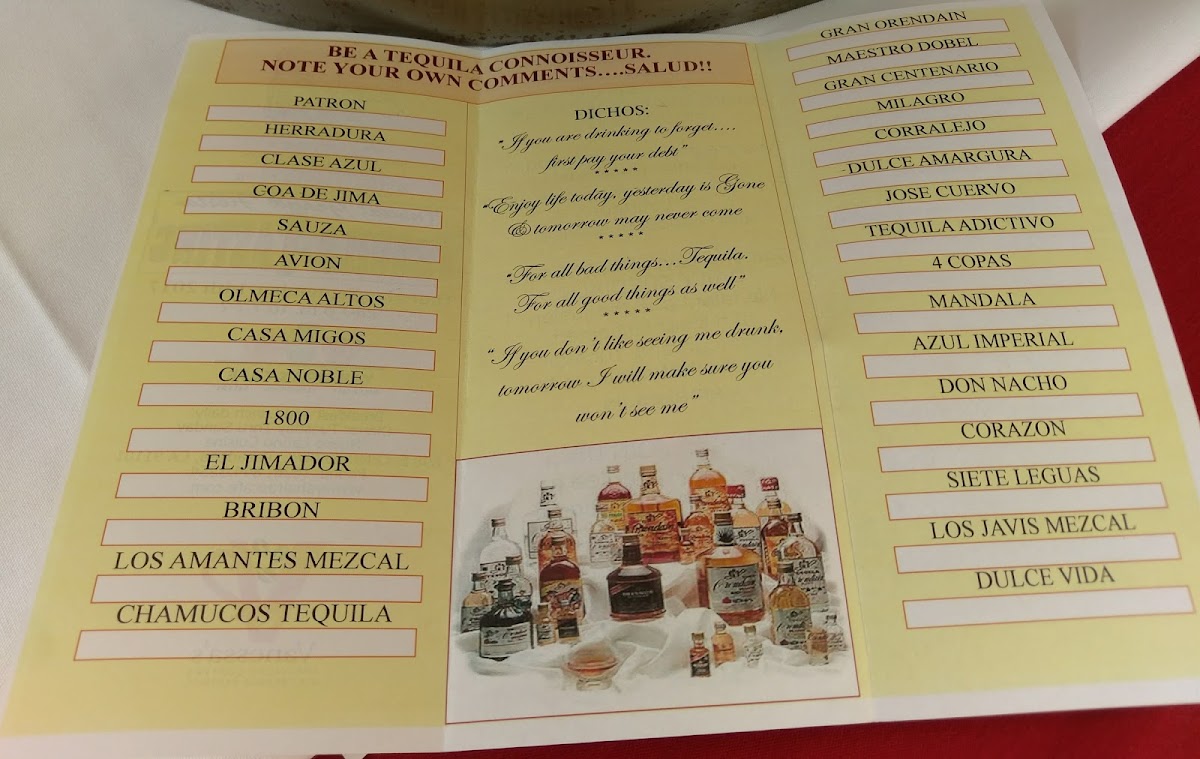 BE A TEQUILA CONNOISSEUR.
NOTE YOUR OWN COMMENTS....SALUD!!
PATRON
HERRADURA
CLASE AZUL
COA DE JIMA
SAUZA
AVION
OLMECA ALTOS
CASA MIGOS
CASA NOBLE
1800
EL JIMADOR
BRIBON
LOS AMANTES MEZCAL
CHAMUCOS TEQUILA
DICHOS:
"If you are drinking to forget....
first pay your debt"
*****
"Enjoy life today, yesterday is Gone
& tomorrow may never come
*****
"For all bad things...Tequila.
For all good things as well"
*****
"If you don't like seeing me drunk,
tomorrow I will make sure you
won't see me"
GRAN ORENDAIN
MAESTRO DOBEL
GRAN CENTENARIO
MILAGRO
CORRALEJO
DULCE AMARGURA
JOSE CUERVO
TEQUILA ADICTIVO
4 COPAS
MANDALA
AZUL IMPERIAL
DON NACHO
CORAZON
SIETE LEGUAS
LOS JAVIS MEZCAL
DULCE VIDA